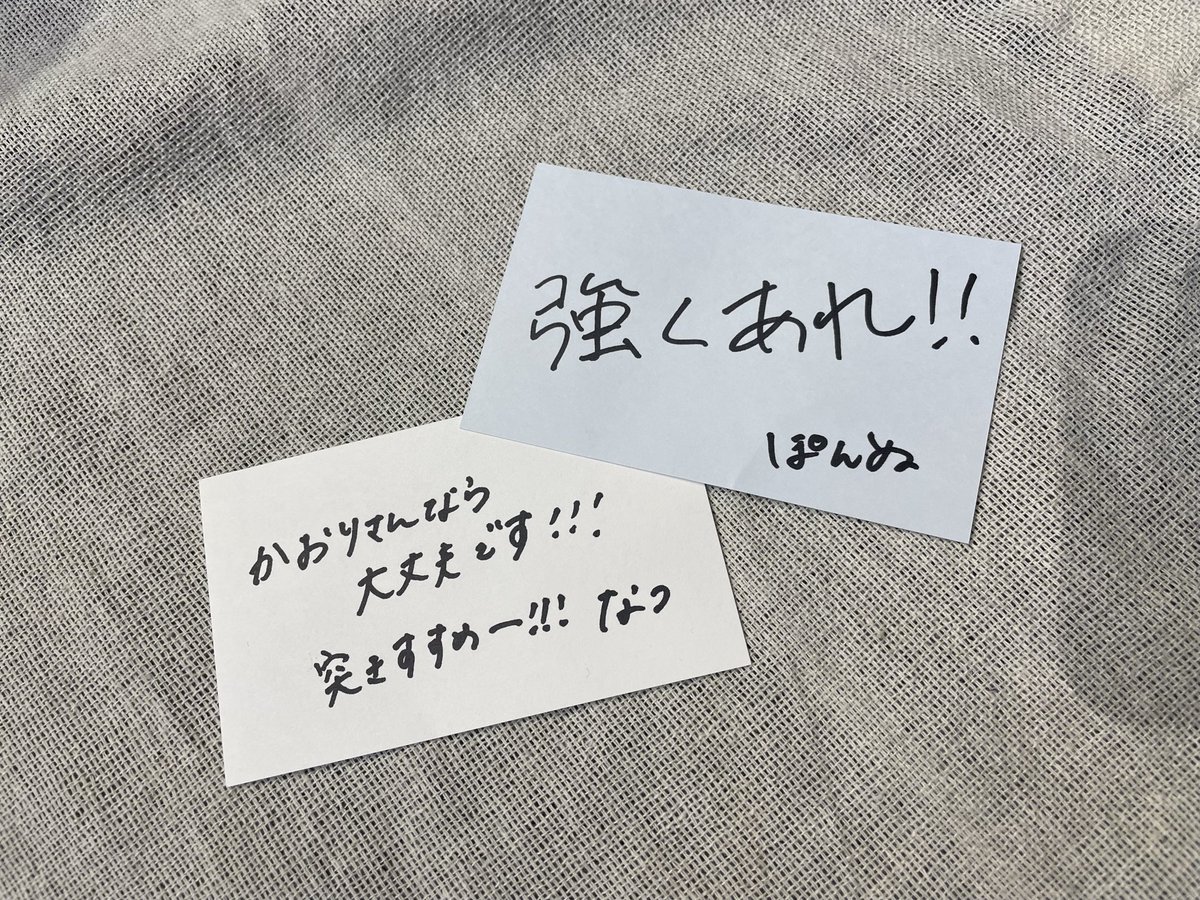 強くあれ!!
ぽんぬ
かおりさんなら
大丈夫です!!!
突きすすめー!!! なつ